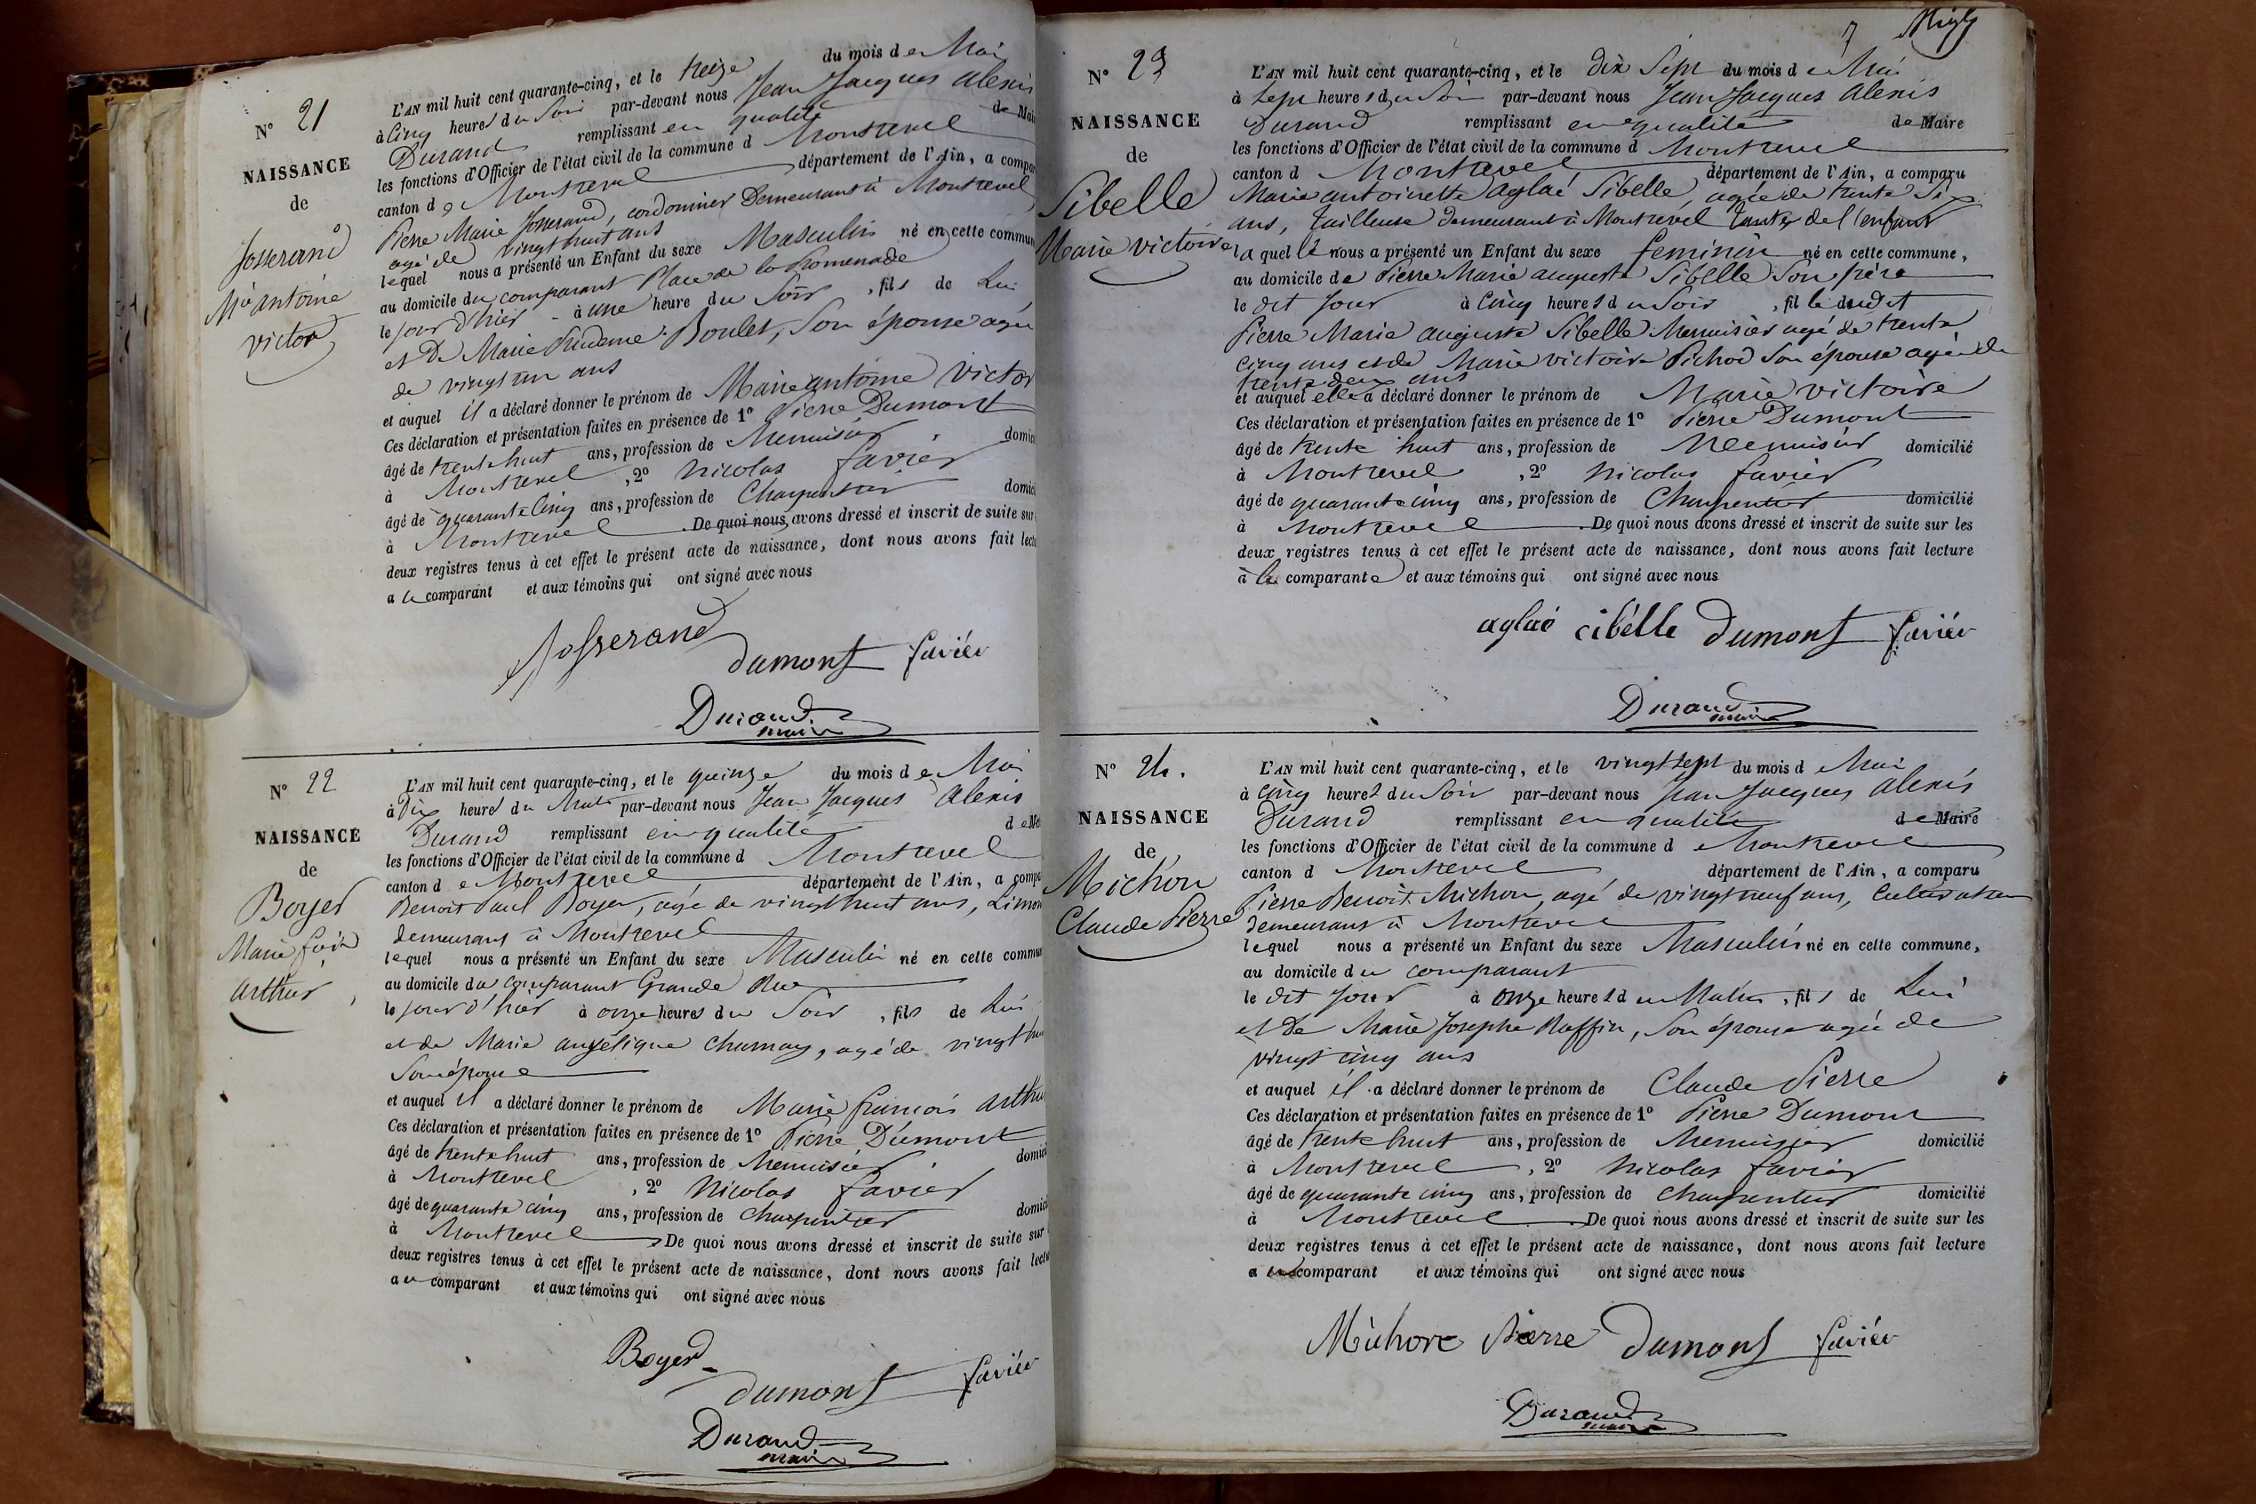 N° 21
NAISSANCE
de
Josserand
Mie antoine
victor
L'AN mil huit cent quarante-cinq, et le treize du mois de Mai
à cinq heures du Soir par-devant nous Jean Jacques alexis
Durand remplissant en qualité de Mai
les fonctions d'Officier de l'état civil de la commune d Montrevel
canton de Montrevel département de l'Ain, a compa
Pierre Marie Josserand, cordonnier Demeurant à Montrevel
agé de vingt huit ans
lequel nous a présenté un Enfant du sexe Masculin né en cette commun
au domicile du comparant Place de la Promenade
le jour d'hier à une heure du Soir, fils de Lui
et De Marie Prudence Boulet, Son épouse agée
de vingt un ans
et auquel il a déclaré donner le prénom de Marie antoine victor
Ces déclaration et présentation faites en présence de 1° Pierre Dumont
âgé de trente huit ans, profession de Menuisier domici
à Montrevel, 2° Nicolas favier
âgé de quarante cinq ans, profession de Charpentier domici
à Montrevel De quoi nous avons dressé et inscrit de suite sur
deux registres tenus à cet effet le présent acte de naissance, dont nous avons fait lectu
a le comparant et aux témoins qui ont signé avec nous
Josserand
dumont favier
Durand
maire
N° 22
NAISSANCE
de
Boyer
Marie fois
arthur
L'AN mil huit cent quarante-cinq, et le quinze du mois de Mai
à Dix heures du Matin par-devant nous Jean Jacques alexis
Durand remplissant en qualité de Me
les fonctions d'Officier de l'état civil de la commune d Montrevel
canton de Montrevel département de l'Ain, a compa
Benoit Paul Boyer, agé de vingt huit ans,
demeurant à Montrevel
lequel nous a présenté un Enfant du sexe Masculin né en cette commun
au domicile du comparant Grande Rue
le jour d'hier à onze heures du Soir, fils de Lui
et de Marie angélique Charnay, agé de vingt
Son épouse
et auquel il a déclaré donner le prénom de Marie françois arthu
Ces déclaration et présentation faites en présence de 1° Pierre Dumont
âgé de trente huit ans, profession de Menuisier domici
à Montrevel, 2° Nicolas favier
âgé de quarante cinq ans, profession de Charpentier domici
à Montrevel De quoi nous avons dressé et inscrit de suite sur
deux registres tenus à cet effet le présent acte de naissance, dont nous avons fait lectu
au comparant et aux témoins qui ont signé avec nous
Boyer
dumont favier
Durand
maire
7
N° 23
NAISSANCE
de
Sibelle
Marie victoire
L'AN mil huit cent quarante-cinq, et le dix Sept du mois de Mai
à Sept heures du Soir par-devant nous Jean Jacques alexis
Durand remplissant en qualité de Maire
les fonctions d'Officier de l'état civil de la commune d Montrevel
canton d Montrevel département de l'Ain, a comparu
Marie antoinette aglaé Sibelle, agée de trente Six
ans, tailleuse demeurant à Montrevel tante de l'enfant
laquelle nous a présenté un Enfant du sexe feminin né en cette commune,
au domicile de Pierre Marie auguste Sibelle Son frère
le dit jour à cinq heures du Soir, fille dudit
Pierre Marie auguste Sibelle Menuisier agé de trente
cinq ans et de Marie victoire Pichod Son épouse agée de
trente deux ans
et auquel elle a déclaré donner le prénom de Marie victoire
Ces déclaration et présentation faites en présence de 1° Pierre Dumont
âgé de trente huit ans, profession de Menuisier domicilié
à Montrevel, 2° Nicolas favier
âgé de quarante cinq ans, profession de Charpentier domicilié
à Montrevel De quoi nous avons dressé et inscrit de suite sur les
deux registres tenus à cet effet le présent acte de naissance, dont nous avons fait lecture
à la comparante et aux témoins qui ont signé avec nous
aglaé cibélle dumont favier
Durand
maire
N° 24.
NAISSANCE
de
Michon
Claude Pierre
L'AN mil huit cent quarante-cinq, et le vingt Sept du mois de Mai
à cinq heures du Soir par-devant nous Jean Jacques alexis
Durand remplissant en qualité de Maire
les fonctions d'Officier de l'état civil de la commune d Montrevel
canton d Montrevel département de l'Ain, a comparu
Pierre Benoit Michon, agé de vingt neuf ans, Cultivateur
demeurant à Montrevel
lequel nous a présenté un Enfant du sexe Masculin né en cette commune,
au domicile du comparant
le dit jour à onze heures du Matin, fils de Lui
et De Marie Josephe Raffin, Son épouse agée de
vingt cinq ans
et auquel il a déclaré donner le prénom de Claude Pierre
Ces déclaration et présentation faites en présence de 1° Pierre Dumont
âgé de trente huit ans, profession de Menuisier domicilié
à Montrevel, 2° Nicolas favier
âgé de quarante cinq ans, profession de Charpentier domicilié
à Montrevel De quoi nous avons dressé et inscrit de suite sur les
deux registres tenus à cet effet le présent acte de naissance, dont nous avons fait lecture
au comparant et aux témoins qui ont signé avec nous
Michon Pierre dumont favier
Durand
maire